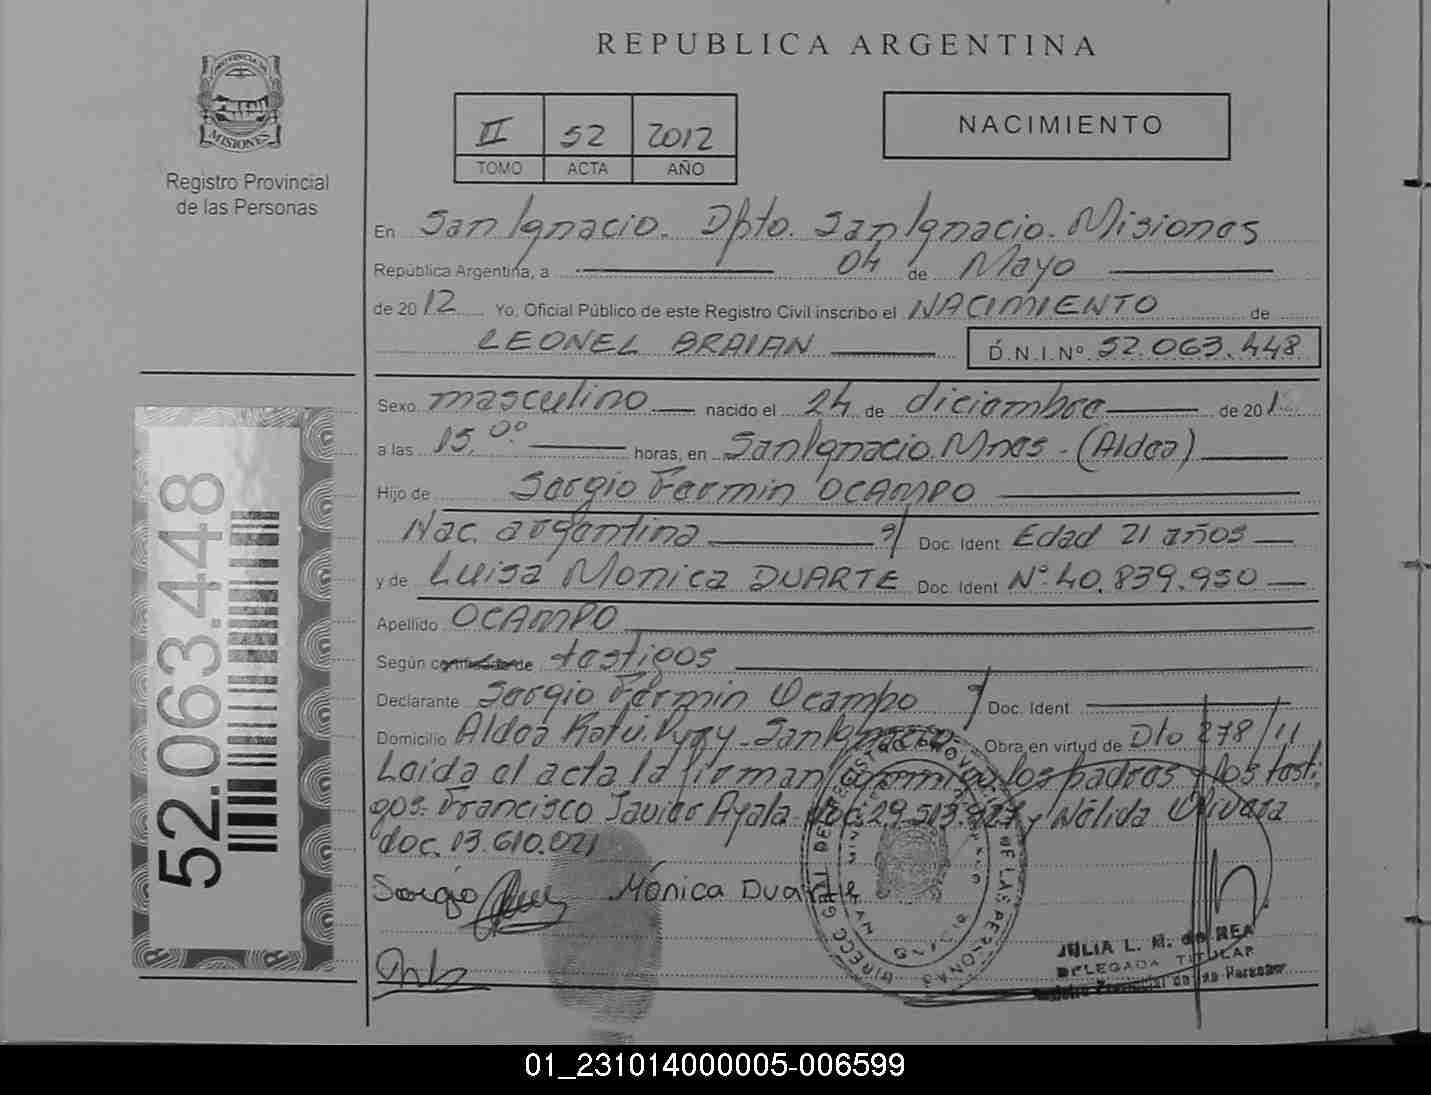 REPUBLICA ARGENTINA
PROVINCIA DE
MISIONES
Registro Provincial
de las Personas
II 52 2012
TOMO ACTA AÑO
NACIMIENTO
En San Ignacio. Dpto. San Ignacio. Misiones
República Argentina, a 04 de Mayo
de 2012 Yo, Oficial Público de este Registro Civil inscribo el NACIMIENTO de
LEONEL BRAIAN D.N.I.Nº 52.063.448
Sexo masculino nacido el 24 de diciembre de 201
a las 15,00 horas, en San Ignacio. Mnes - (Aldea)
Hijo de Sergio Fermin OCAMPO
Nac. argentina Doc. Ident Edad 21 años
y de Luisa Monica DUARTE Doc. Ident Nº 40.839.950
Apellido OCAMPO
Según certificado de testigos
Declarante Sergio Fermin Ocampo Doc. Ident
Domicilio Aldea San Ignacio Obra en virtud de Dto 278/11
Leida el acta la firman conmigo los padres y los testi-
gos: Francisco Javier Ayala doc. 29.513.927 y Nélida Olivera
doc. 13.610.021
Sergio Mónica Duarte
JULIA L. M. de REA
DELEGADA TITULAR
Registro Provincial de las Personas
52.063.448
01_231014000005-006599